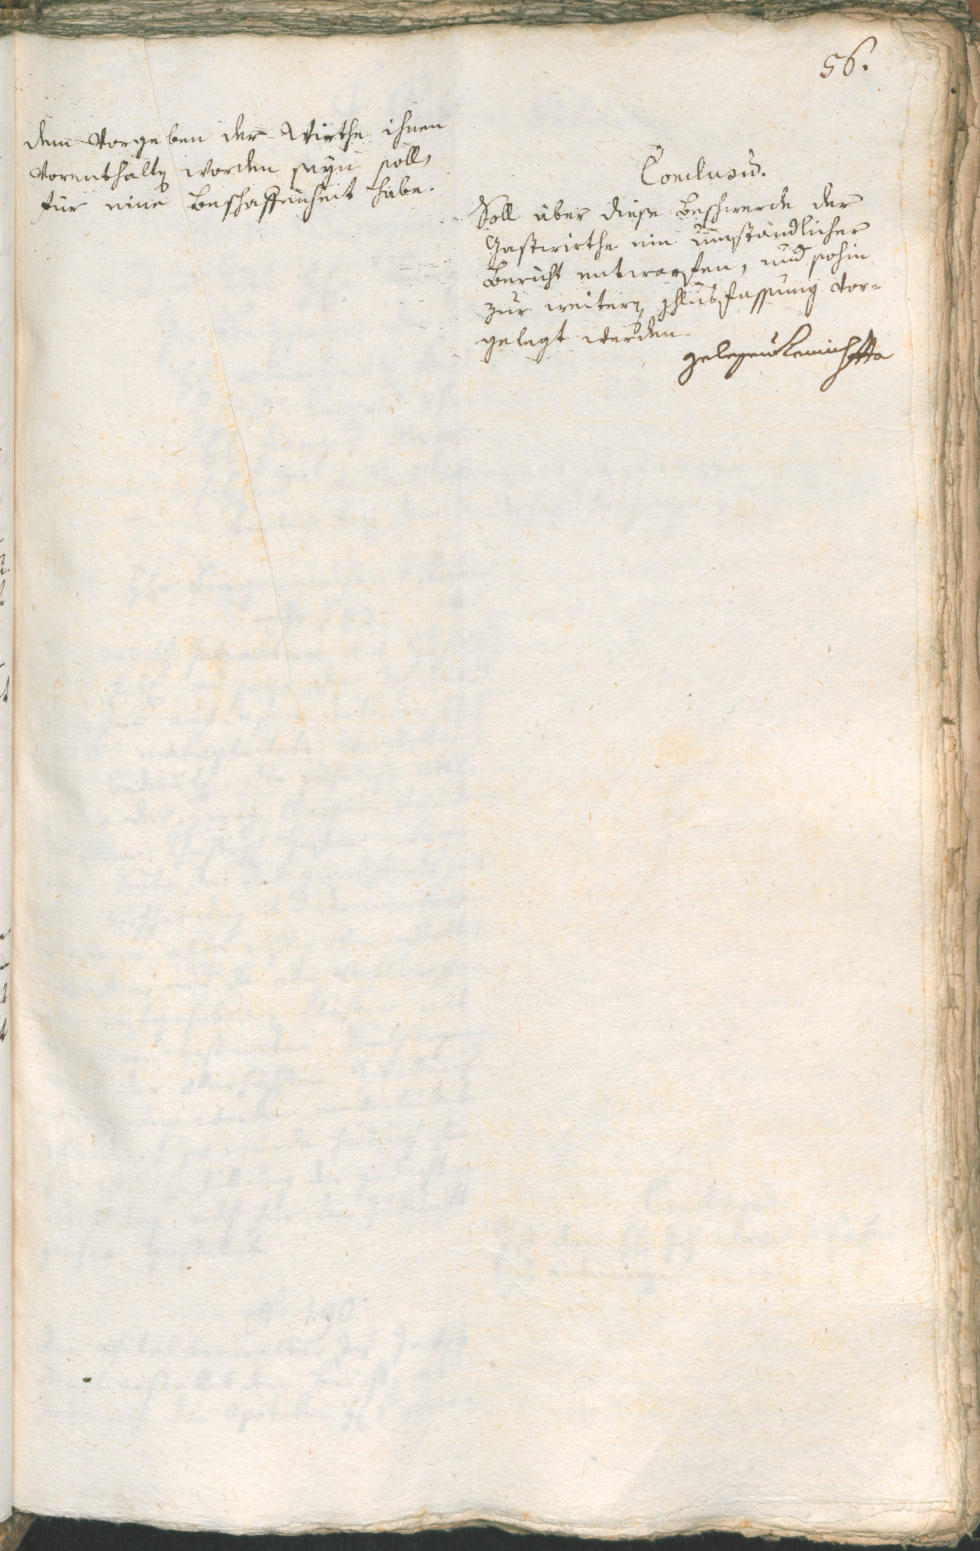 56.
dem Vorgeben der Wirthe ihnen
Vorenthalten worden seyn soll,
für eine Beschaffenheit habe.
Conclusū.
Soll über diese Beschwerde der
Gastwirthe ein umständlicher
Bericht entworfen, und sohin
zur weitern Schlusfassung vor-
gelegt werden.
gelesen